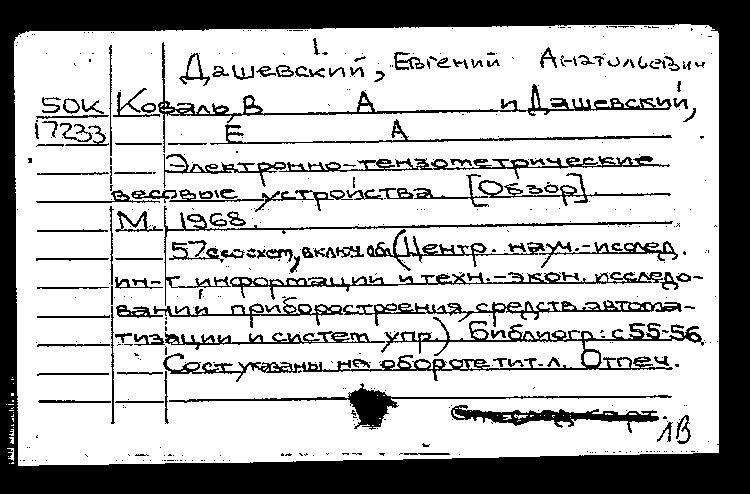 1.
Дашевский, Евгений Анатольевич
50К Коваль, В А и Дашевский,
17233 Е А
Электронно-тензометрические
весовые устройства. [Обзор].
М. 1968.
57с со схем, включ обл (Центр. науч.-исслед.
ин-т информации и техн.-экон. исследо-
ваний приборостроения, средств автома-
тизации и систем упр.) Библиогр: с 55-56
Сост указаны на обороте тит. л. Отпеч.
1В